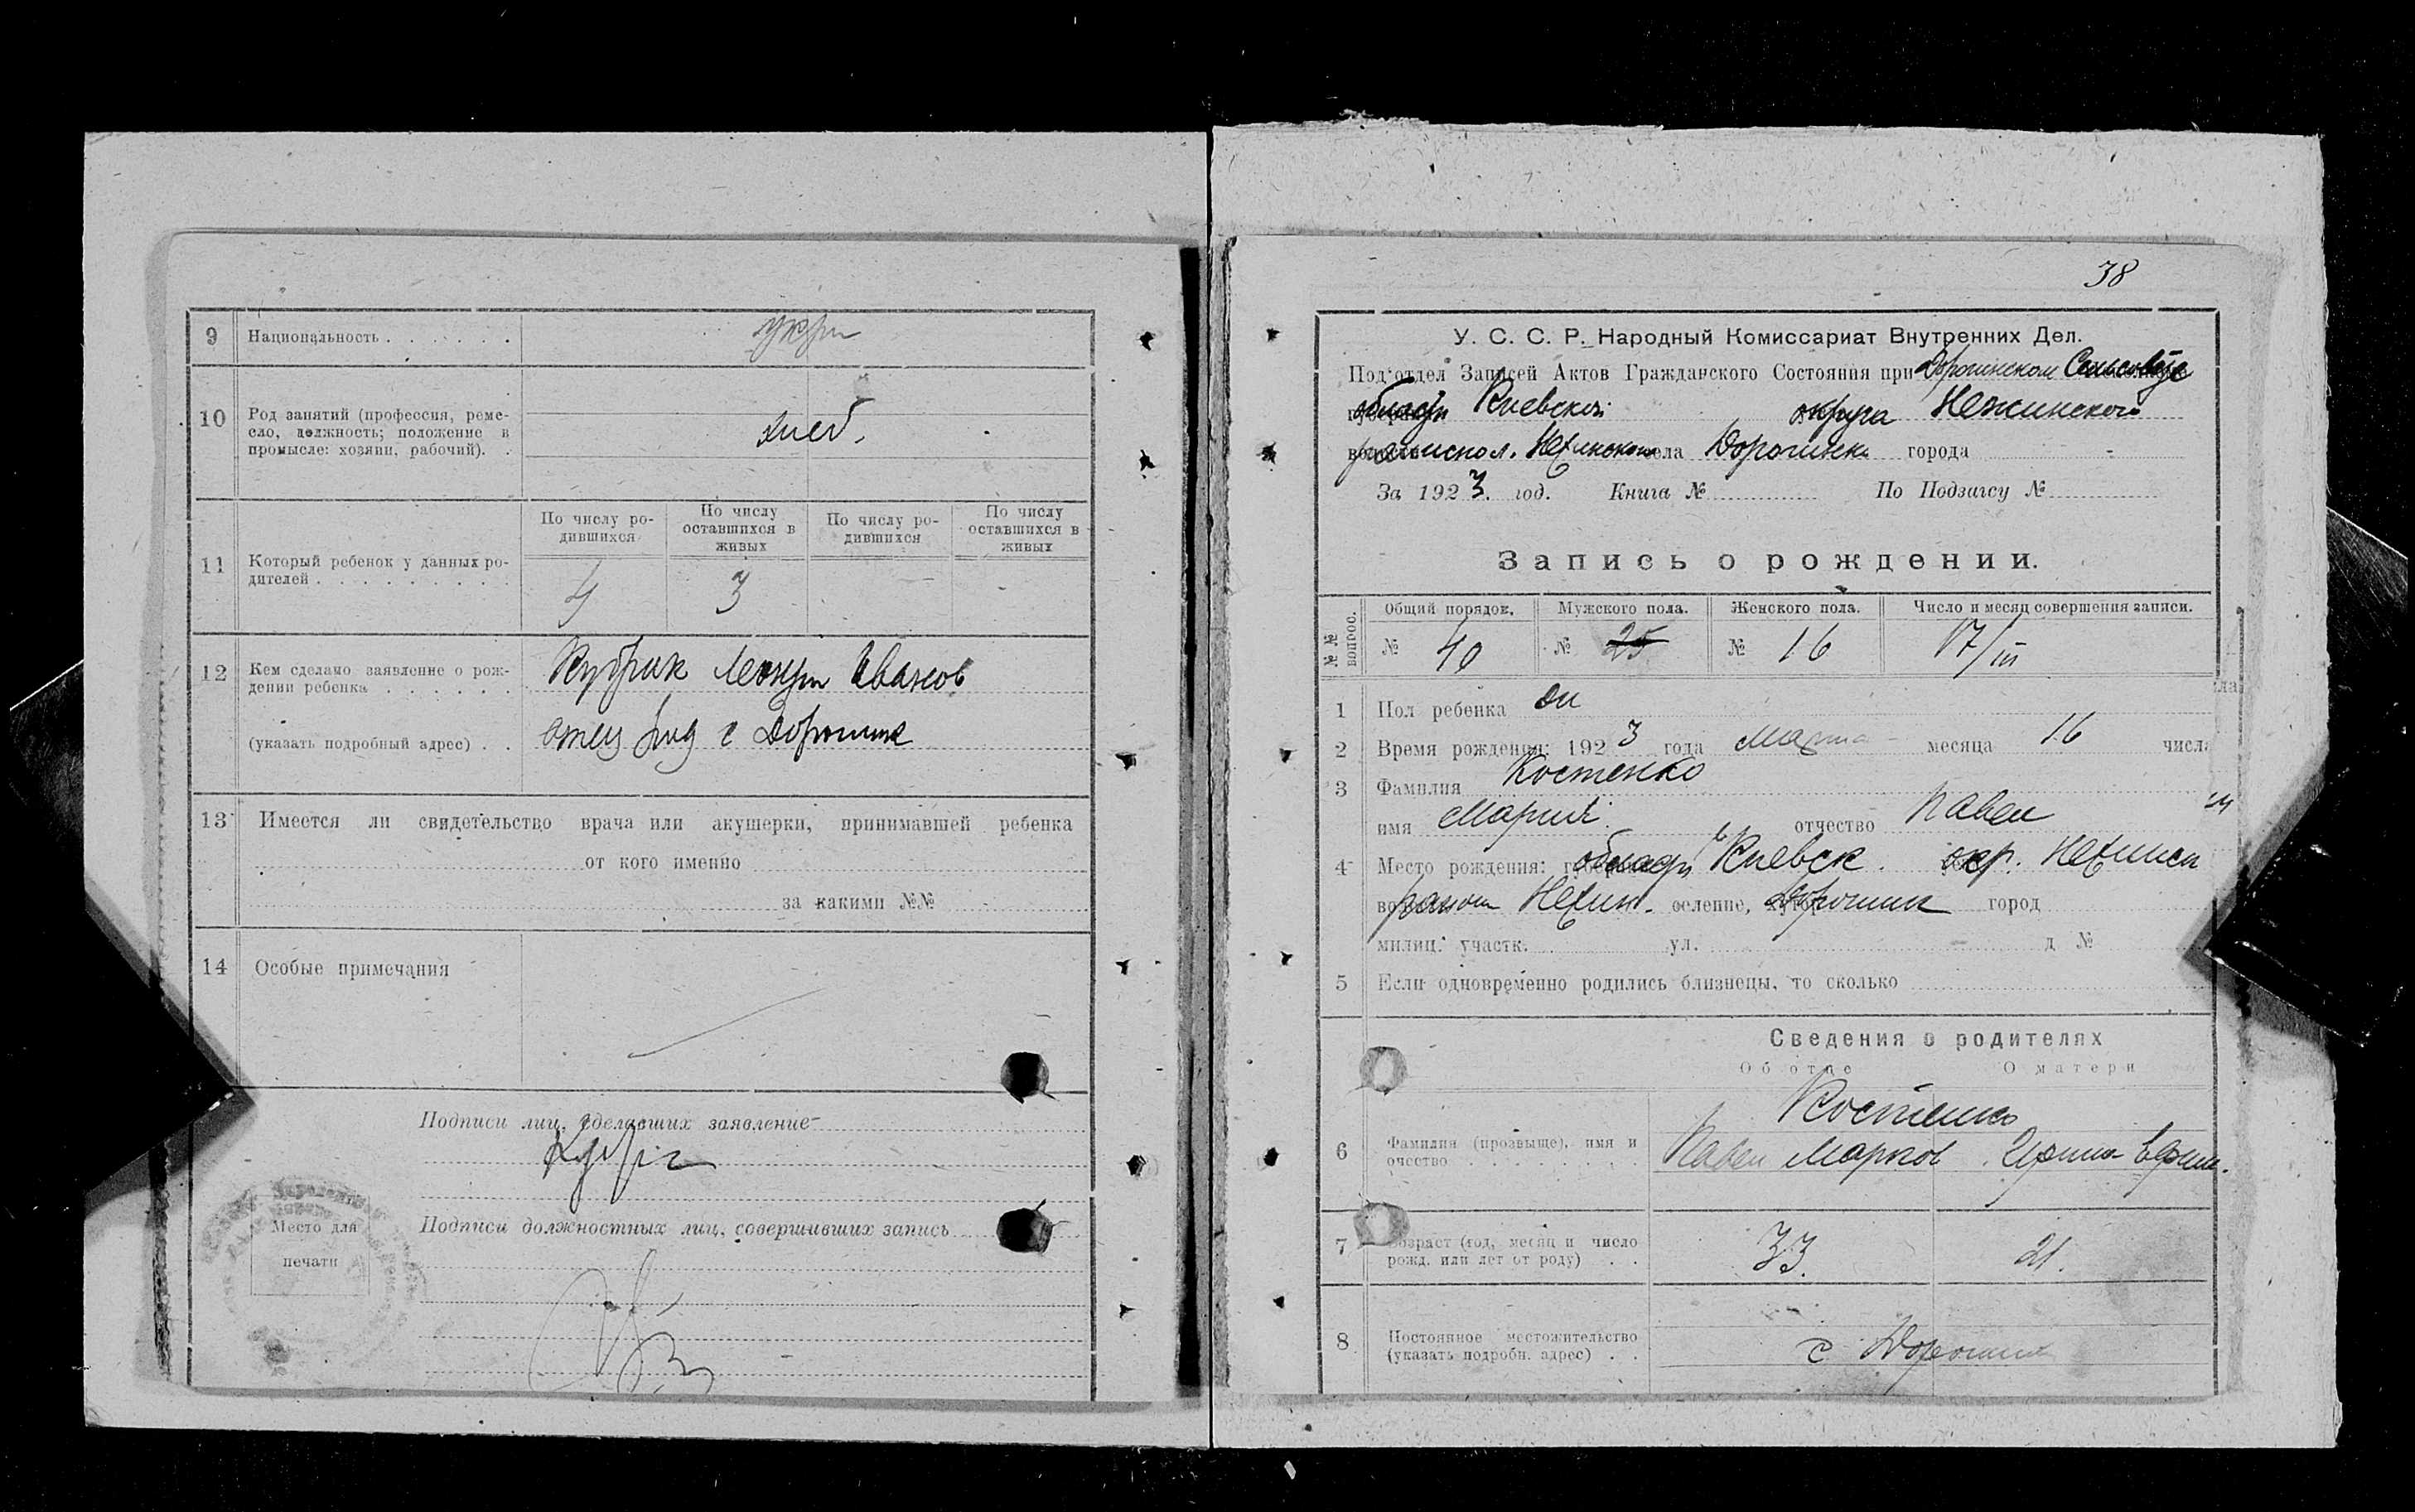 9 Национальность . . . . . . . укра
10 Род занятий (профессия, реме-
сло, должность; положение в
промысле: хозяин, рабочий). .
хлеб.
По числу ро-
дившихся
По числу
оставшихся в
живых
По числу ро-
дившихся
По числу
оставшихся в
живых
11 Который ребенок у данных ро-
дителей . . . . . . . . .
4 3
12 Кем сделано заявление о рож-
дении ребенка . . . . . .
Кубрак Иванов
(указать подробный адрес) . .
отец с Дорогинк
13 Имеется ли свидетельство врача или акушерки, принимавшей ребенка
от кого именно
за какими №№
14 Особые примечания
Подписи лиц, сделавших заявление
Подписи должностных лиц, совершивших запись
Место для
печати
38
У. С. С. Р. Народный Комиссариат Внутренних Дел.
Под'отдел Записей Актов Гражданского Состояния при Дорогинском Сельсовете
области Киевской округа Нежинского
райиспол. Нежинского села Дорогинки города -
За 1923. год. Книга № По Подзагсу №
Запись о рождении.
№ № вопрос.
Общий порядок. Мужского пола. Женского пола. Число и месяц совершения записи.
№ 40 № 25 № 16 17/III
1 Пол ребенка
2 Время рождения: 1923 года Марта месяца 16 числа
3 Фамилия Костенко
имя Мария отчество Павел
4 Место рождения: области Киевск. окр. Нежинск
район Нежин. селение, Дорогинк город
милиц. участк. ул. д №
5 Если одновременно родились близнецы, то сколько
Сведения о родителях
Об отце О матери
Костенко
6 Фамилия (прозвыще), имя и
очество . . . . . . . .
Павел Марков Ирина Ефим.
7 Возраст (год, месяц и число
рожд. или лет от роду) . .
33. 21.
8 Постоянное местожительство
(указать подробн. адрес) . .
с Дорогинк